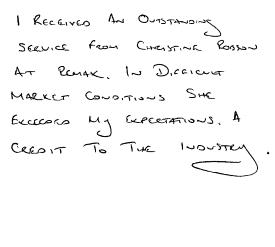 I Received An Outstanding
Service From Christine Rosson
At Remax. In Difficult
Market Conditions She
Exceeded My Expectations. A
Credit To The Industry.